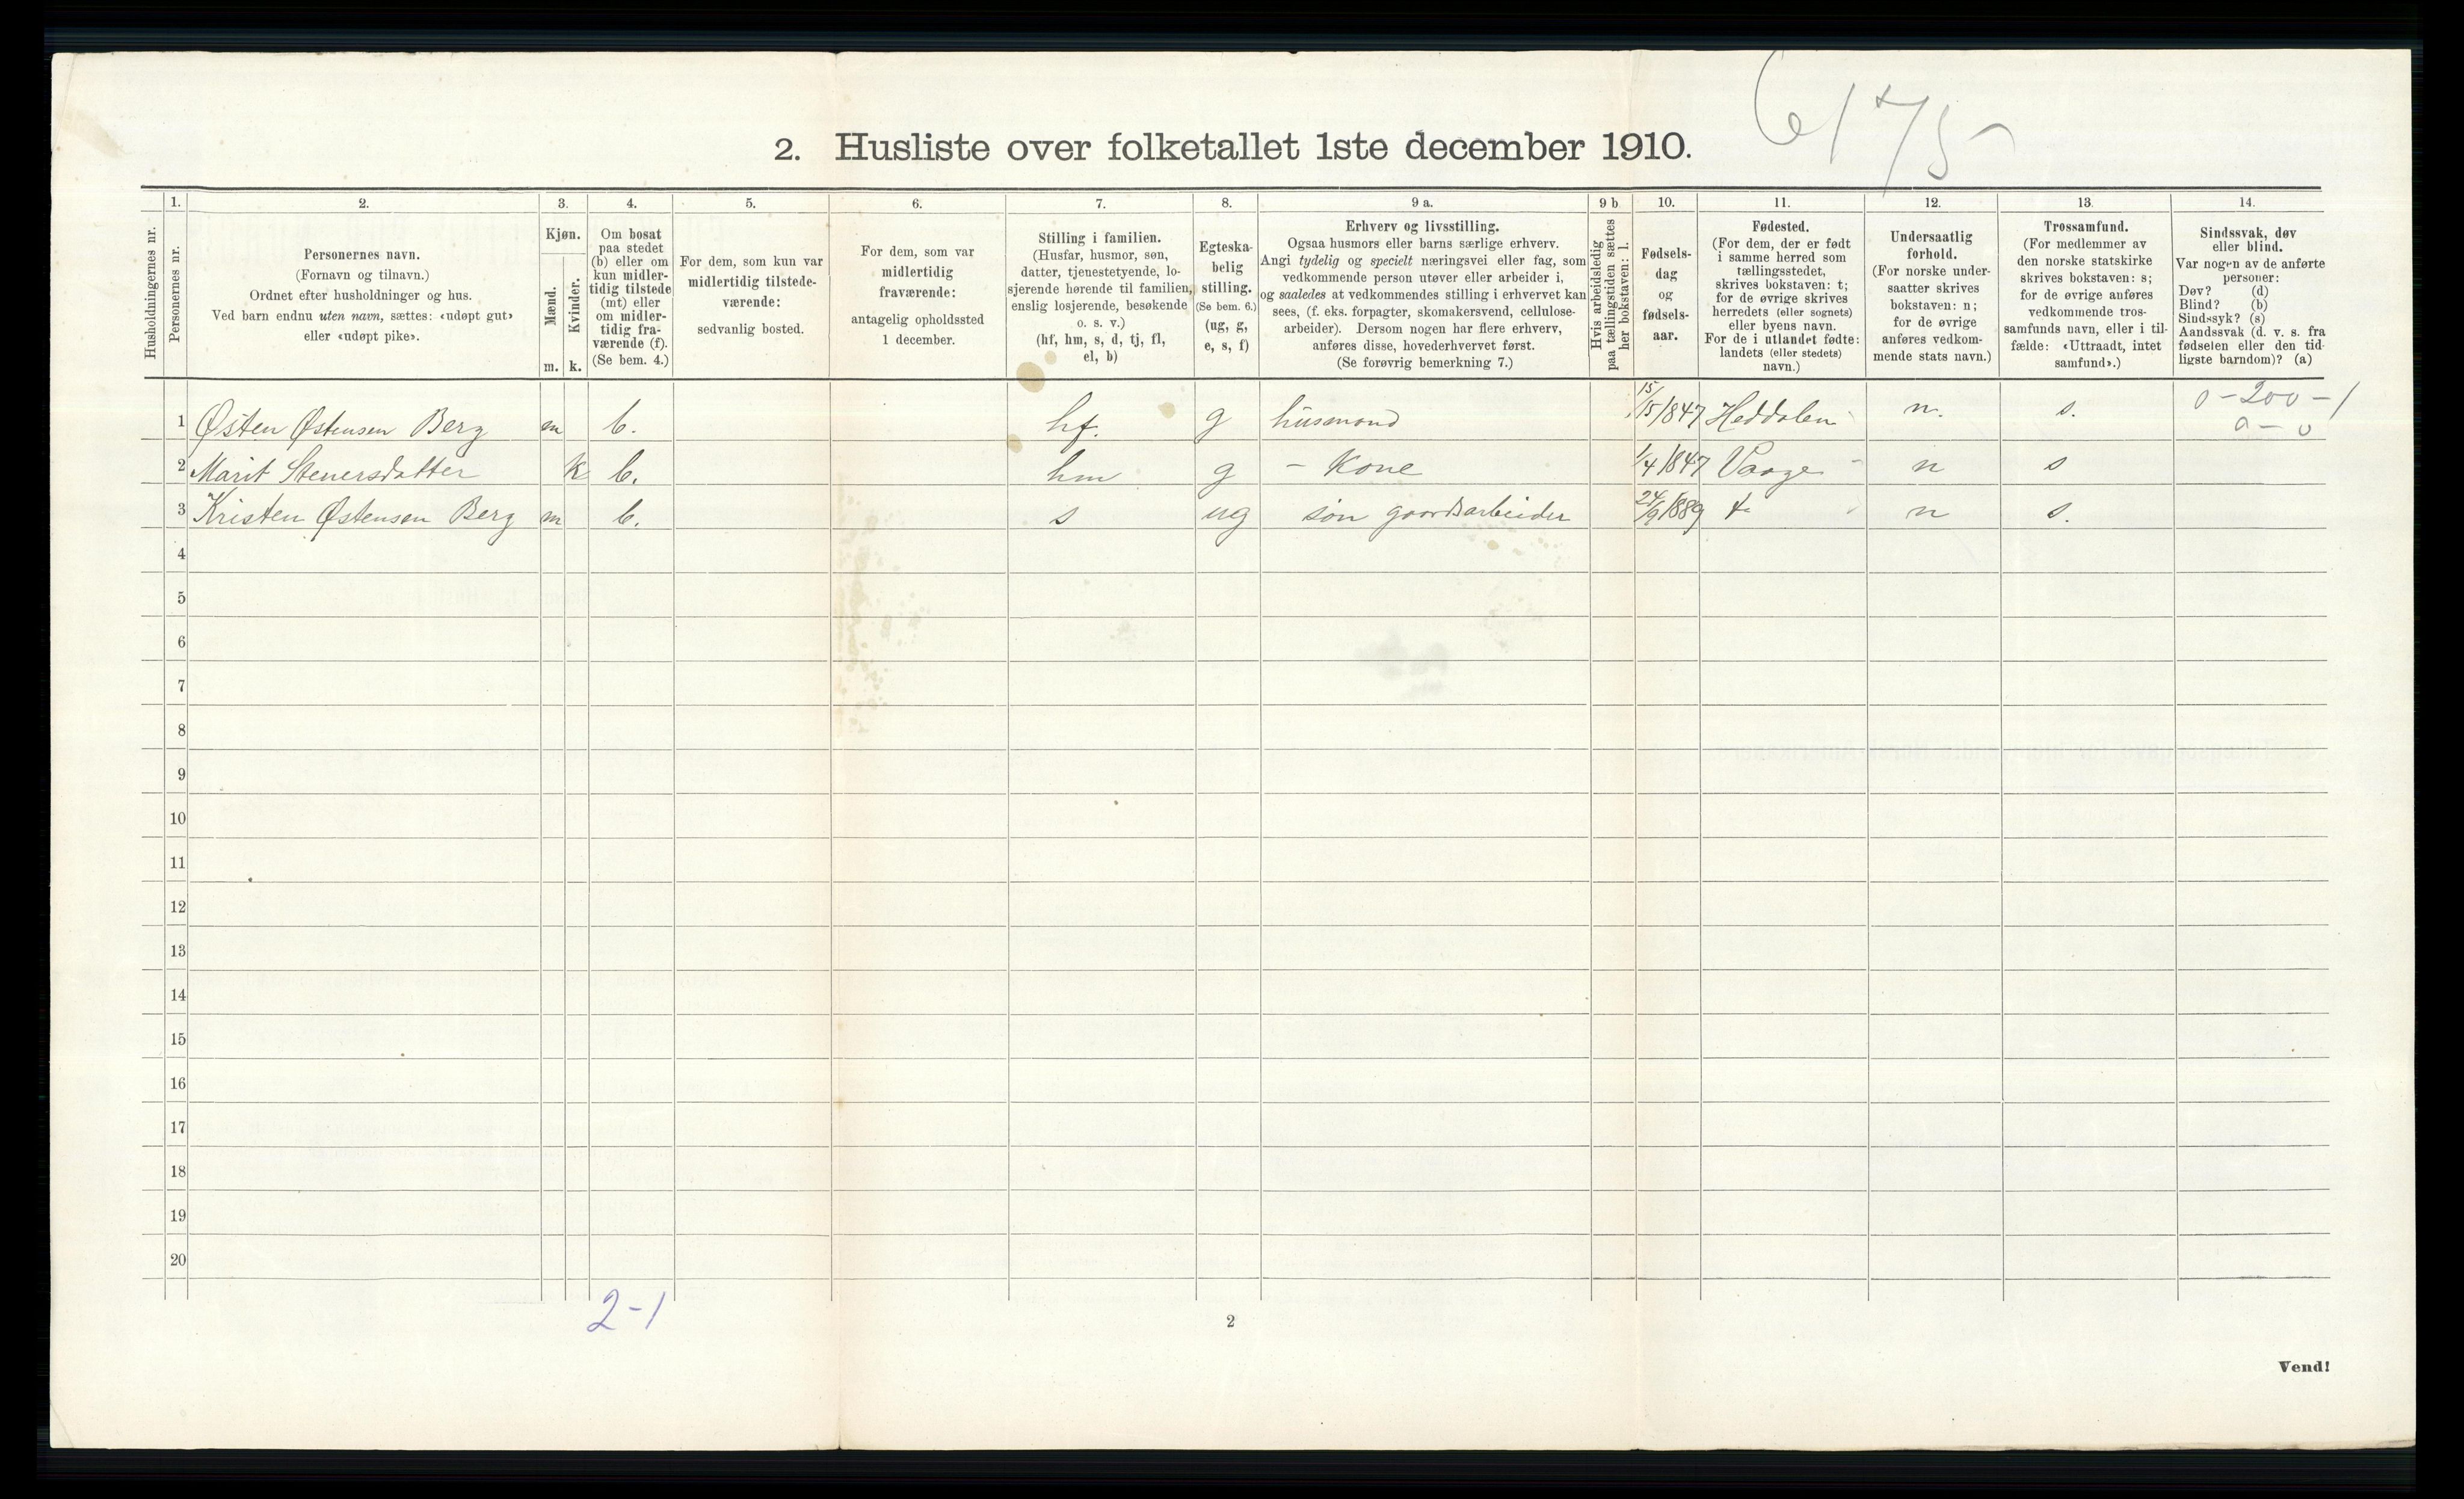 6175-
2. Husliste over folketallet 1ste december 1910.
Husholdningernes nr.
1.
Personernes nr.
2.
Personernes navn.
(Fornavn og tilnavn.)
Ordnet efter husholdninger og hus.
Ved barn endnu uten navn, sættes: «udøpt gut»
eller «udøpt pike».
3.
Kjøn.
Mænd.
Kvinder.
m. k.
4.
Om bosat
paa stedet
(b) eller om
kun midler-
tidig tilstede
(mt) eller
om midler-
tidig fra-
værende (f).
(Se bem. 4.)
5.
For dem, som kun var
midlertidig tilstede-
værende:
sedvanlig bosted.
6.
For dem, som var
midlertidig
fraværende:
antagelig opholdssted
1 december.
7.
Stilling i familien.
(Husfar, husmor, søn,
datter, tjenestetyende, lo-
sjerende hørende til familien,
enslig losjerende, besøkende
o. s. v.)
(hf, hm, s, d, tj, fl,
el, b)
8.
Egteska-
belig
stilling.
(Se bem. 6.)
(ug, g,
e, s, f)
9 a.
Erhverv og livsstilling.
Ogsaa husmors eller barns særlige erhverv.
Angi tydelig og specielt næringsvei eller fag, som
vedkommende person utøver eller arbeider i,
og saaledes at vedkommendes stilling i erhvervet kan
sees, (f. eks. forpagter, skomakersvend, cellulose-
arbeider). Dersom nogen har flere erhverv,
anføres disse, hovederhvervet først.
(Se forøvrig bemerkning 7.)
9 b
Hvis arbeidsledig
paa tællingstiden sættes
her bokstaven: l.
10.
Fødsels-
dag
og
fødsels-
aar.
11.
Fødested.
(For dem, der er født
i samme herred som
tællingsstedet,
skrives bokstaven: t;
for de øvrige skrives
herredets (eller sognets)
eller byens navn.
For de i utlandet fødte:
landets (eller stedets)
navn.)
12.
Undersaatlig
forhold.
(For norske under-
saatter skrives
bokstaven: n;
for de øvrige
anføres vedkom-
mende stats navn.)
13.
Trossamfund.
(For medlemmer av
den norske statskirke
skrives bokstaven: s;
for de øvrige anføres
vedkommende tros-
samfunds navn, eller i til-
fælde: «Uttraadt, intet
samfund».)
14.
Sindssvak, døv
eller blind.
Var nogen av de anførte
personer:
Døv? (d)
Blind? (b)
Sindssyk? (s)
Aandssvak (d. v. s. fra
fødselen eller den tid-
ligste barndom)? (a)
1 Østen Østensen Berg m b. hf. g husmand 1847 Heddalen n. s. 0-200-1
0-0
2 Marit Steuersdatter k b. hm g - Kone 1/4 1847 Vaage - n s
3 Kristen Østensen Berg m b. s ug søn gaardsarbeider 24/9 1889 t n s.
4
5
6
7
8
9
10
11
12
13
14
15
16
17
18
19
20
2-1
2
Vend!